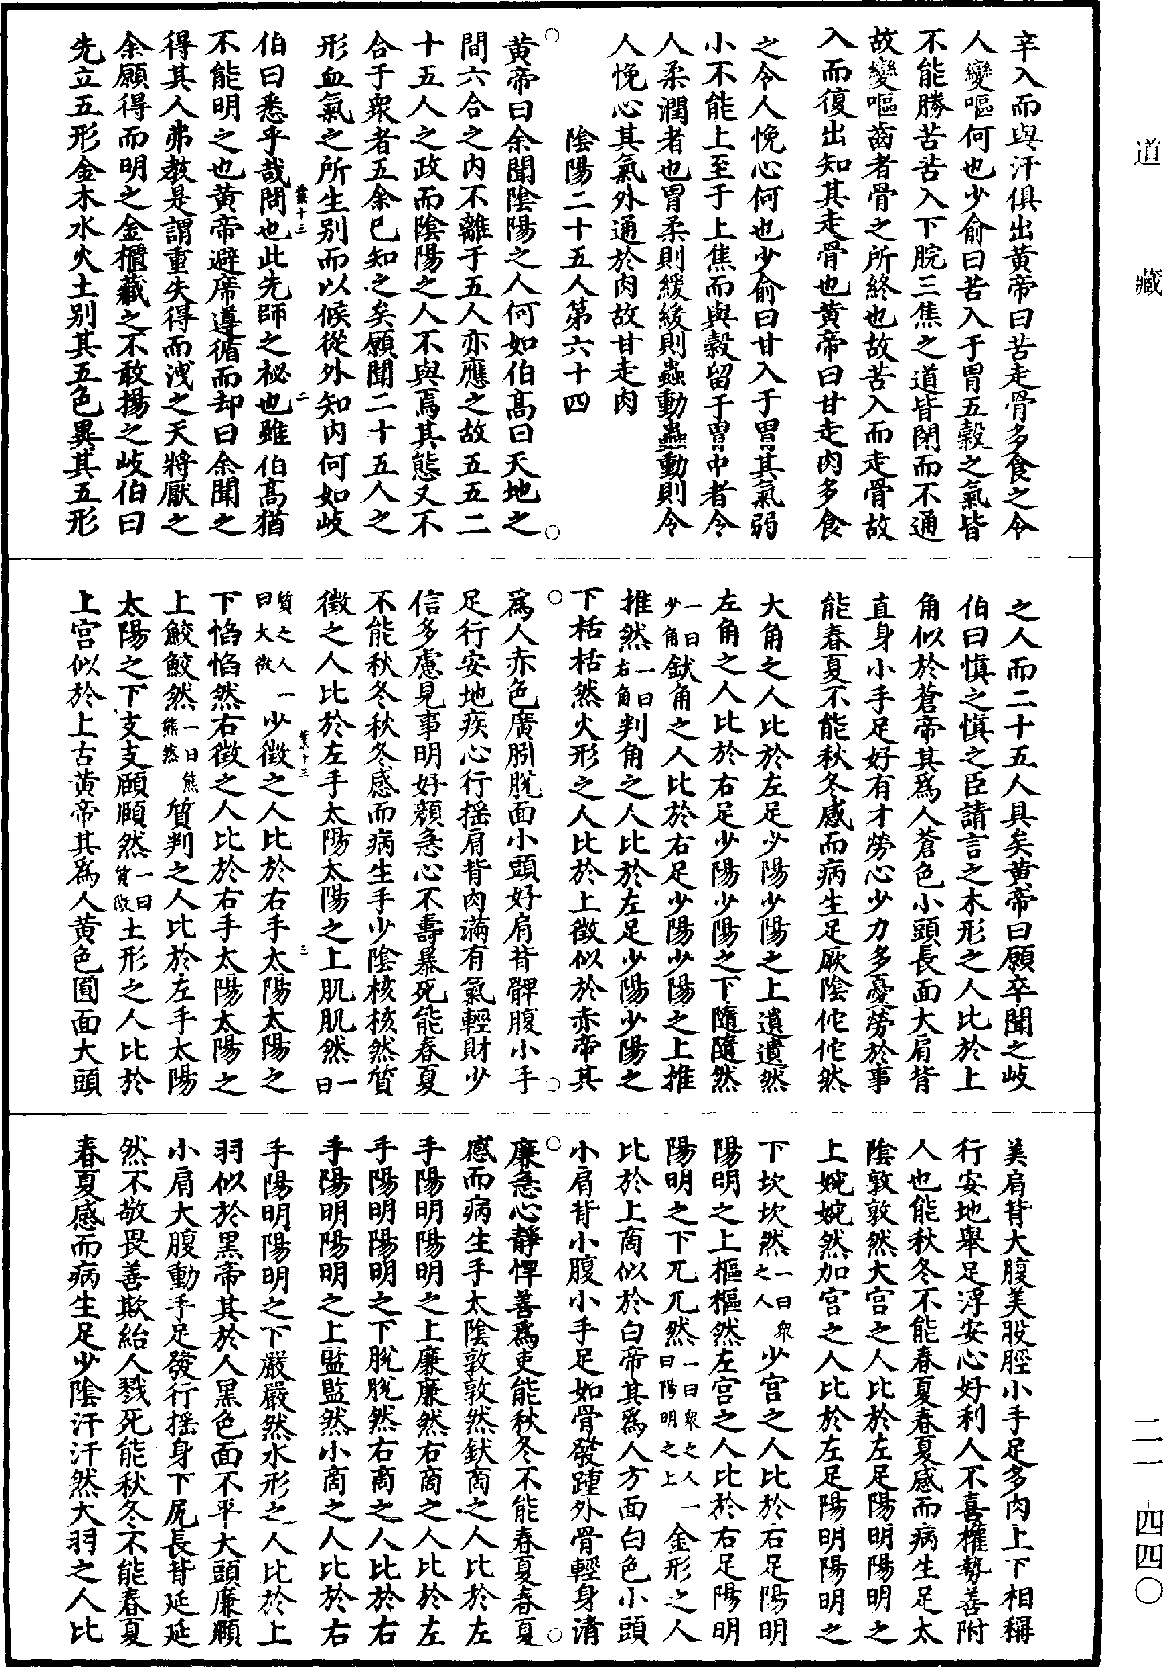 道藏
二一·四四〇
辛入而與汗俱出黃帝曰苦走骨多食之令
人變嘔何也少俞曰苦入于胃五穀之氣皆
不能勝苦苦入下脘三焦之道皆閉而不通
故變嘔齒者骨之所終也故苦入而走骨故
入而復出知其走骨也黃帝曰甘走肉多食
之令人悗心何也少俞曰甘入于胃其氣弱
小不能上至于上焦而與穀留于胃中者令
人柔潤者也胃柔則緩緩則蟲動蟲動則令
人悗心其氣外通於肉故甘走肉
陰陽二十五人第六十四
黃帝曰余聞陰陽之人何如伯高曰天地之
間六合之內不離于五人亦應之故五五二
十五人之政而陰陽之人不與焉其態又不
合于衆者五余已知之矣願聞二十五人之
形血氣之所生別而以候從外知內何如岐
伯曰悉乎哉問也此先師之祕也雖伯高猶
不能明之也黃帝避席遵循而却曰余聞之
得其人弗教是謂重失得而洩之天將厭之
余願得而明之金櫃藏之不敢揚之岐伯曰
先立五形金木水火土別其五色異其五形
之人而二十五人具矣黃帝曰願卒聞之岐
伯曰慎之慎之臣請言之木形之人比於上
角似於蒼帝其爲人蒼色小頭長面大肩背
直身小手足好有才勞心少力多憂勞於事
能春夏不能秋冬感而病生足厥陰佗佗然
大角之人比於左足少陽少陽之上遺遺然
左角之人比於右足少陽少陽之下隨隨然
一曰少角釱角之人比於右足少陽少陽之上推
推然一曰右角判角之人比於左足少陽少陽之
下栝栝然火形之人比於上徵似於赤帝其
爲人赤色廣䏖脫面小頭好肩背髀腹小手
足行安地疾心行搖肩背肉滿有氣輕財少
信多慮見事明好顏急心不壽暴死能春夏
不能秋冬秋冬感而病生手少陰核核然質
徵之人比於左手太陽太陽之上肌肌然一曰
質之人一曰大徵少徵之人比於右手太陽太陽之
下慆慆然右徵之人比於右手太陽太陽之
上鮫鮫然一曰熊熊然質判之人比於左手太陽
太陽之下支支頤頤然一曰質徵土形之人比於
上宮似於上古黃帝其爲人黃色圓面大頭
美肩背大腹美股脛小手足多肉上下相稱
行安地舉足浮安心好利人不喜權勢善附
人也能秋冬不能春夏春夏感而病生足太
陰敦敦然大宮之人比於左足陽明陽明之
上婉婉然加宮之人比於左足陽明陽明之
下坎坎然一曰衆之人少宮之人比於右足陽明
陽明之上樞樞然左宮之人比於右足陽明
陽明之下兀兀然一曰衆之人一曰陽明之上金形之人
比於上商似於白帝其爲人方面白色小頭
小肩背小腹小手足如骨發踵外骨輕身清
廉急心靜悍善爲吏能秋冬不能春夏春夏
感而病生手太陰敦敦然釱商之人比於左
手陽明陽明之上廉廉然右商之人比於左
手陽明陽明之下脫脫然右商之人比於右
手陽明陽明之上監監然小商之人比於右
手陽明陽明之下嚴嚴然水形之人比於上
羽似於黑帝其於人黑色面不平大頭廉頤
小肩大腹動手足發行搖身下尻長背延延
然不敬畏善欺紿人戮死能秋冬不能春夏
春夏感而病生足少陰汗汗然大羽之人比
業十三
二
業十三
三